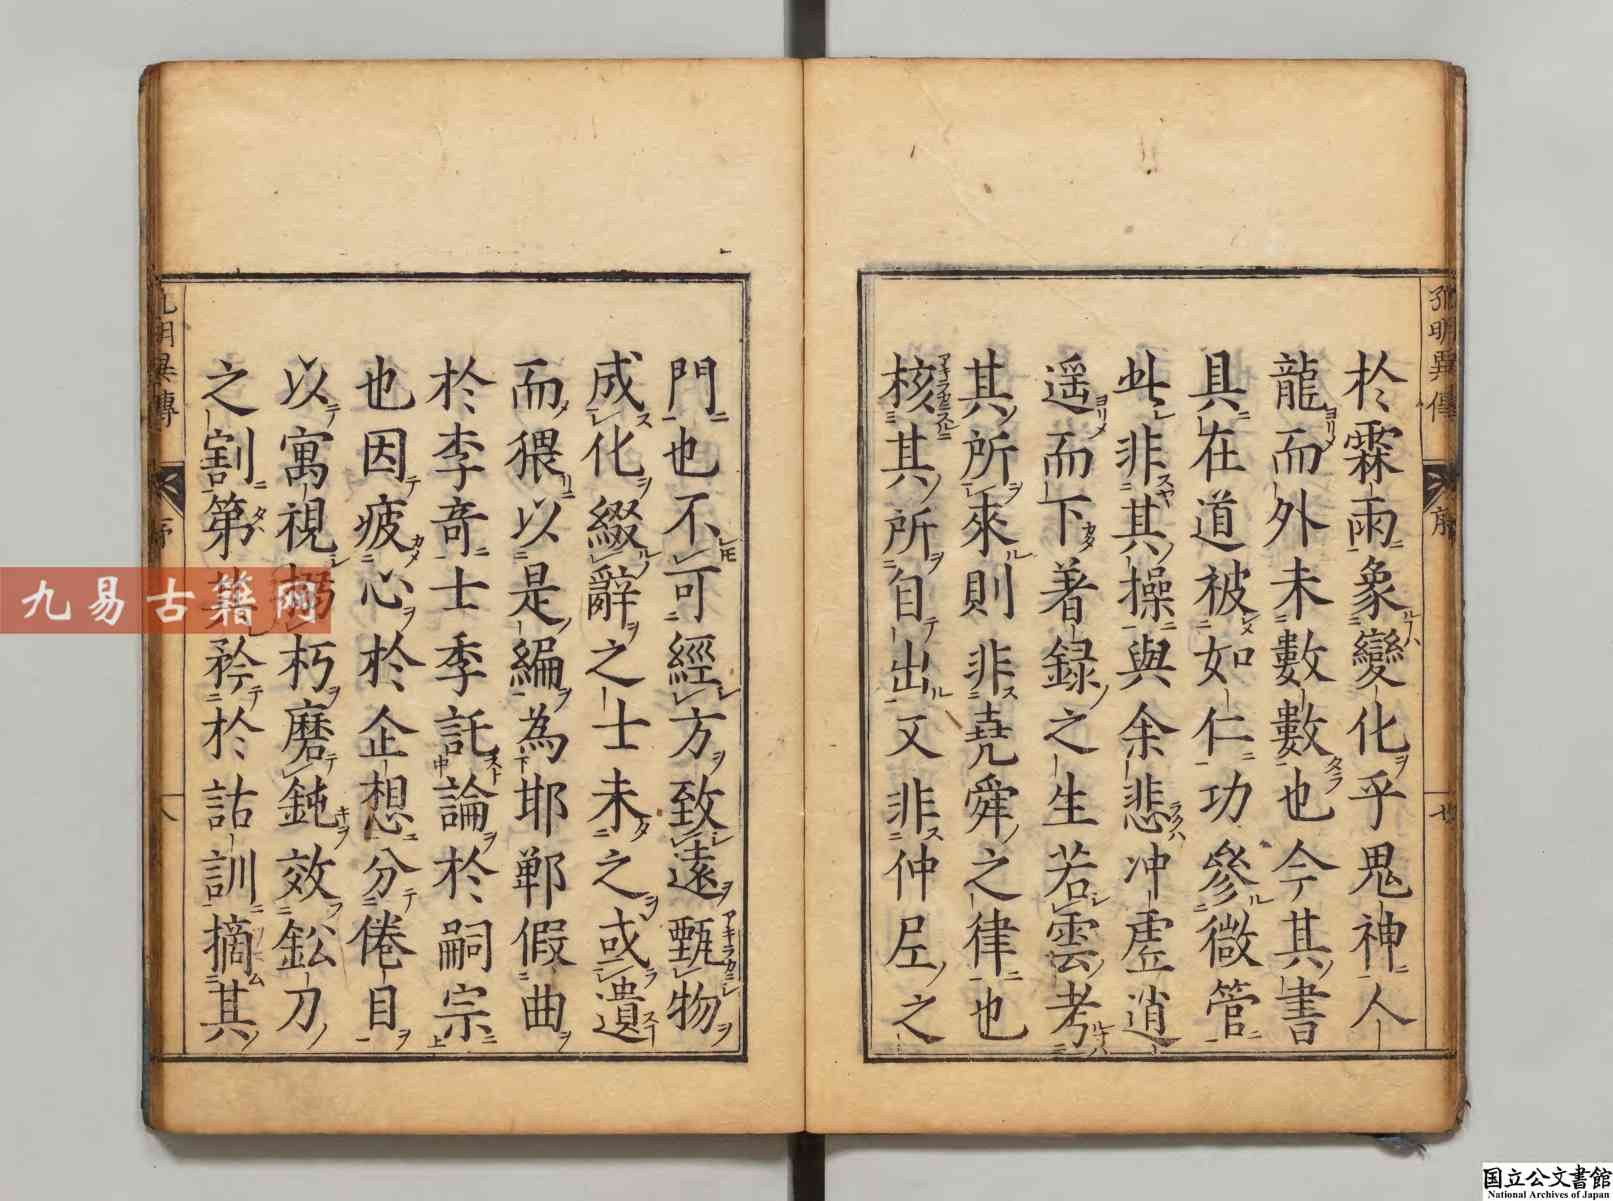 於霖雨象變化乎鬼神人
龍而外未數數也今其書
具在道被如仁功參微管
此非其操與余悲冲虛逍
遥而下著録之生若雲考
其所來則非堯舜之律也
核其所自出又非仲尼之
門也不可經方致遠甄物
成化綴辭之士未之或遺
而猥以是編為邯鄲假曲
於李竒士季託論於嗣宗
也因疲心於企想分倦目
以寓視搦朽磨鈍效鈆刀
之割第其矜於詁訓摘其
孔明異傳
序
七
孔明異傳
序
八
九易古籍网
国立公文書館
National Archives of Japan